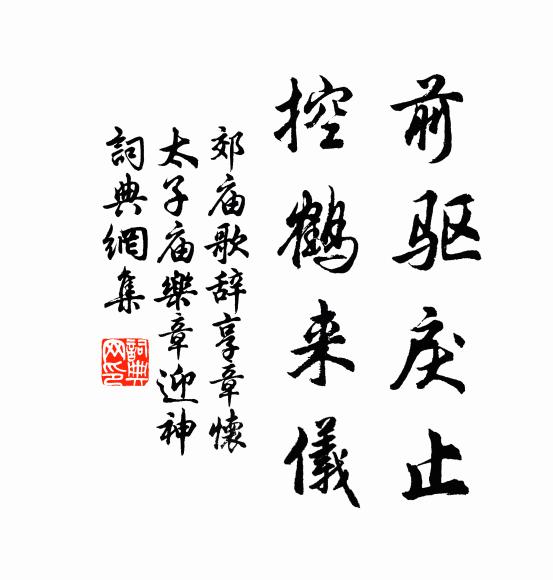 前驱戾止
控鹤来儀
郊庙歌辞享章懷
太子庙樂章迎神
詞典網集
詞典网印